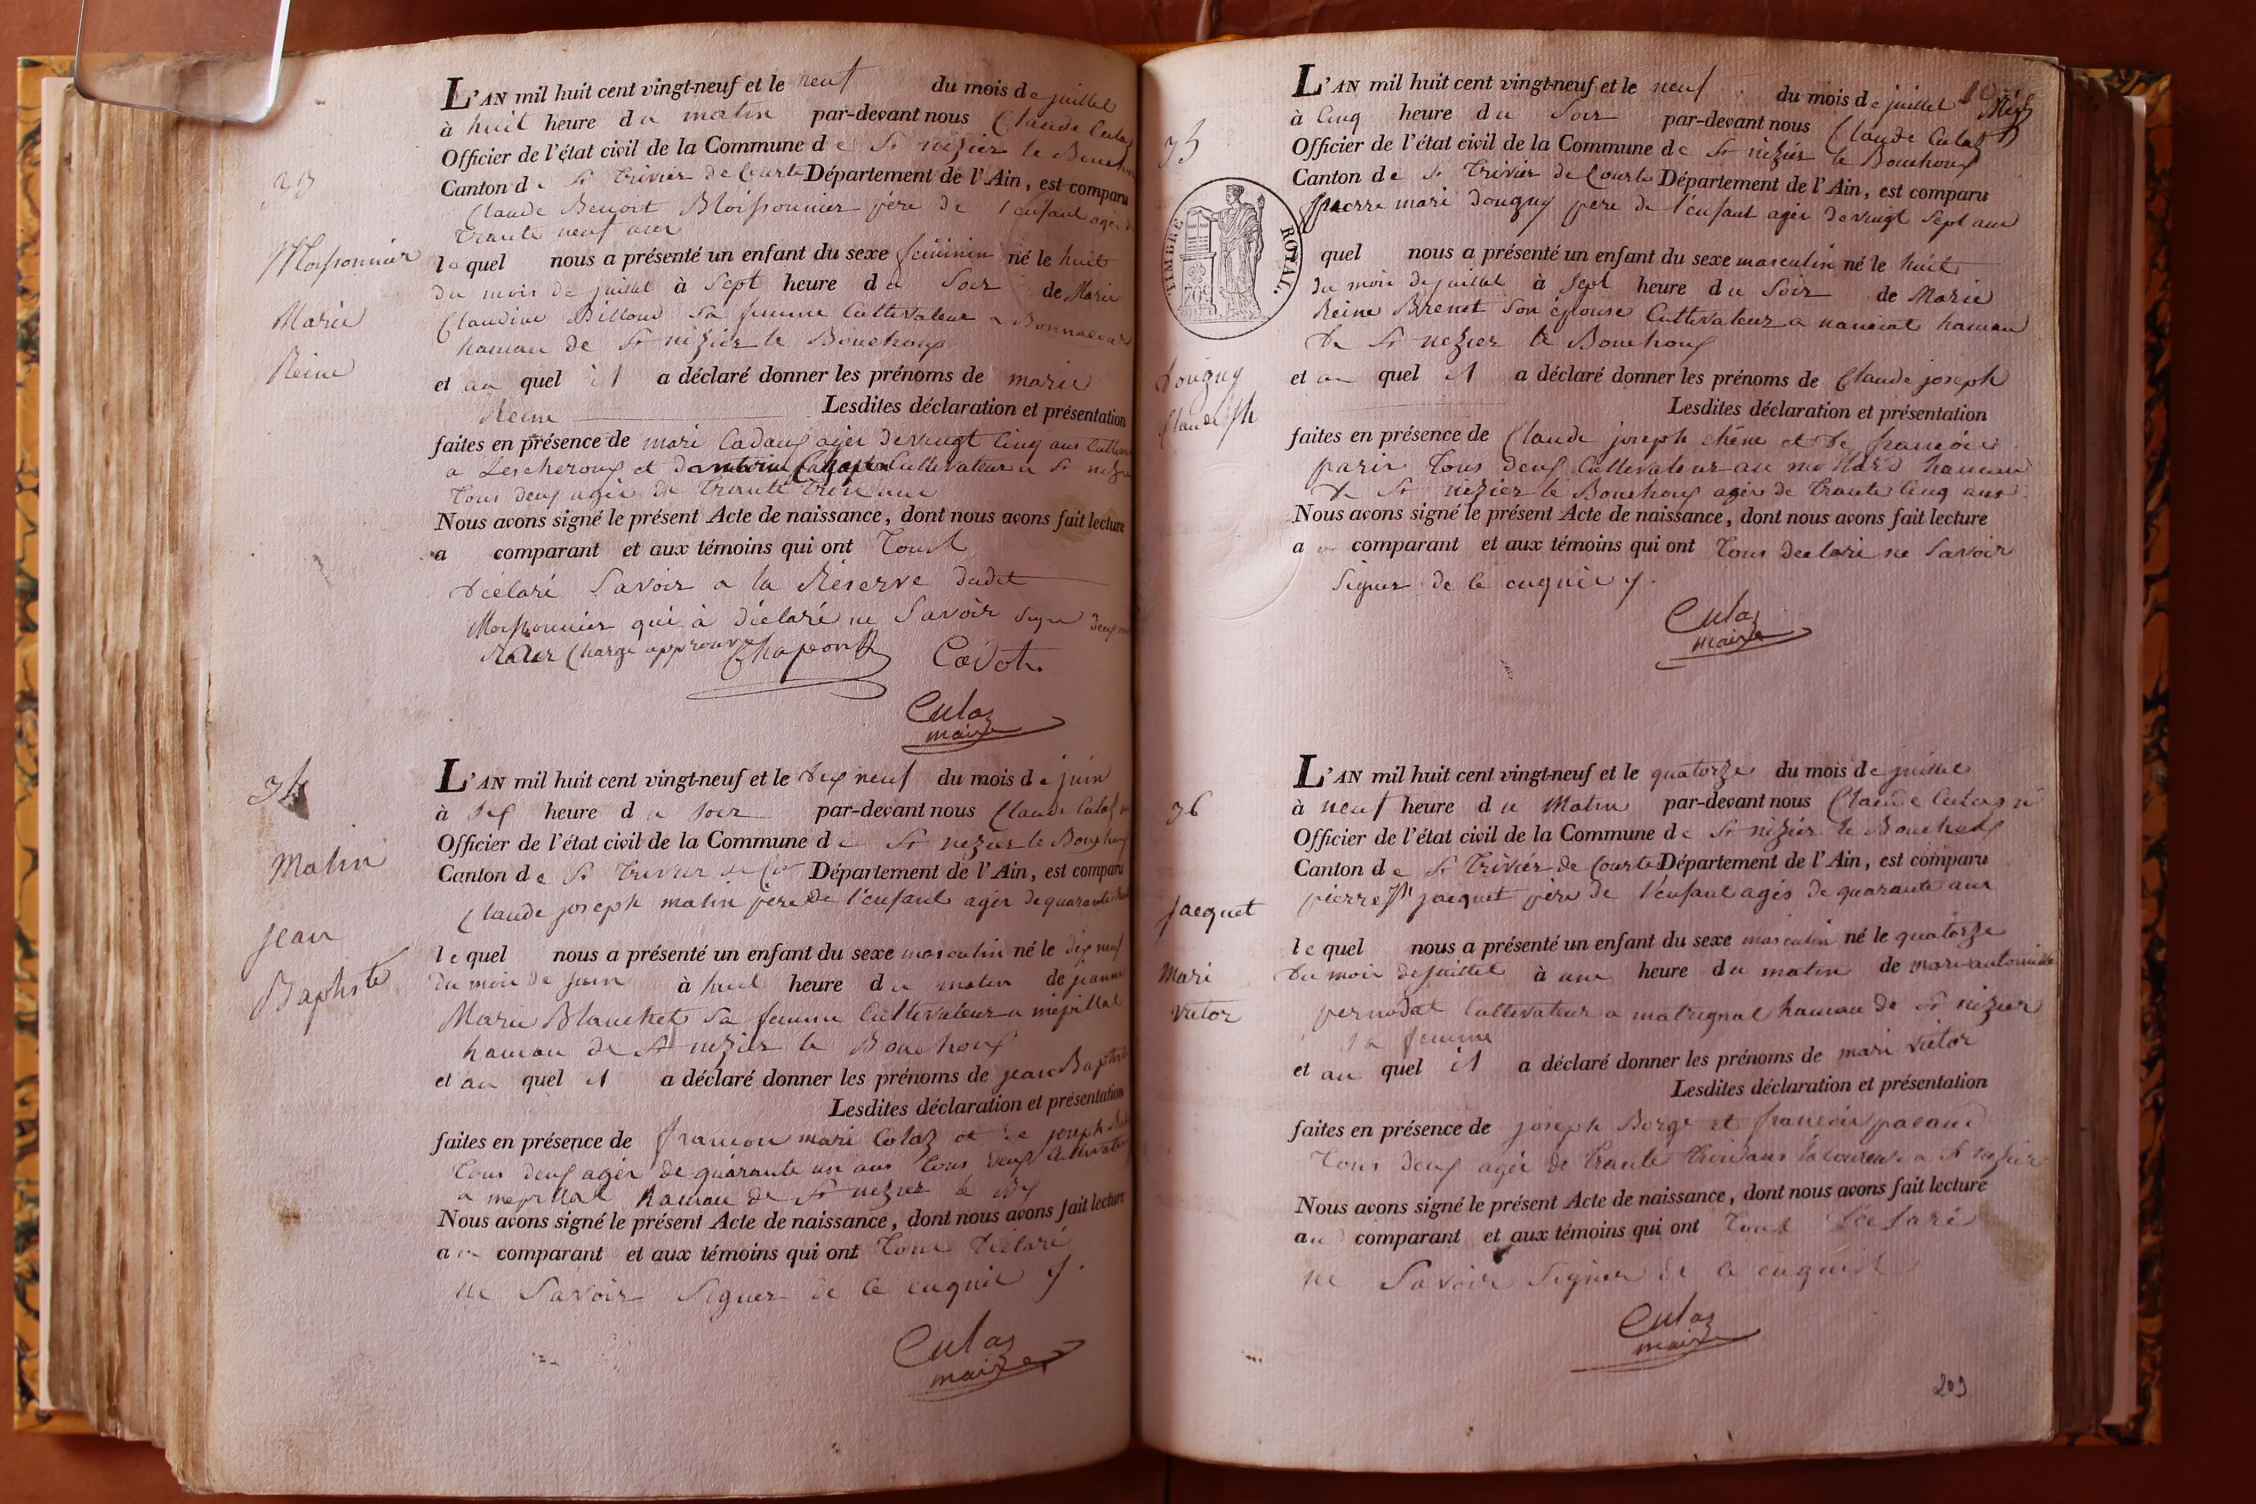 L'AN mil huit cent vingt-neuf et le neuf du mois de juillet
à huit heure du matin par-devant nous Claude Culaz
Officier de l'état civil de la Commune de St nizier le Bouchoux
Canton de St Trivier de Courte Département de l'Ain, est comparu
Claude Benoit Moissonnier père de l'enfant agés de
trante neuf ans
Moissonnier
Marie
Reine
lequel nous a présenté un enfant du sexe féminin né le huit
du mois de juillet à Sept heure du Soir de Marie
Claudine Billoud sa femme Cultivateur a
hamau de St nizier le Bouchoux
et au quel il a déclaré donner les prénoms de marie
Reine Lesdites déclaration et présentation
faites en présence de mari Cadoux agés de vingt Cinq ans
a Lescheroux et Cultivateur a St nizier
tous deux agés de trante trois ans
Nous avons signé le présent Acte de naissance, dont nous avons fait lecture
a comparant et aux témoins qui ont tous
déclaré Savoir a la Réserve dudit
Moissonnier qui à déclaré ne Savoir signé deux
Chargé approuvé Chapon Cadot
Culaz
maire
34
Matin
Jean
Baptiste
L'AN mil huit cent vingt-neuf et le dix neuf du mois de juin
à six heure du soir par-devant nous Claude Culaz
Officier de l'état civil de la Commune de St nizier le Bouchoux
Canton de St Trivier de Département de l'Ain, est comparu
Claude joseph matin père de l'enfant agés de quarante
lequel nous a présenté un enfant du sexe masculin né le dix neuf
du mois de juin à huit heure du matin de jeanne
Marie Blanchet sa femme Cultivateur a mépillat
hamau de St nizier le Bouchoux
et au quel il a déclaré donner les prénoms de jean Baptiste
Lesdites déclaration et présentation
faites en présence de francois mari Colaz et de joseph
tous deux agés de quarante un ans tous deux Cultivateur
a mépillat hamau de St nizier le
Nous avons signé le présent Acte de naissance, dont nous avons fait lecture
au comparant et aux témoins qui ont tous déclaré
ne Savoir Signer de ce enquis
Culaz
maire
35
L'AN mil huit cent vingt-neuf et le neuf du mois de juillet
à Cinq heure du Soir par-devant nous Claude Culaz
Officier de l'état civil de la Commune de St nizier le Bouchoux
Canton de St Trivier de Courte Département de l'Ain, est comparu
pierre mari douguy père de l'enfant agés de vingt sept ans
TIMBRE ROYAL.
70c
quel nous a présenté un enfant du sexe masculin né le huit
du mois de juillet à sept heure du Soir de Marie
Reine Brenet Son épouse Cultivateur a hamau
de St nizier le Bouchoux
Douguy
Claude Jh
et au quel il a déclaré donner les prénoms de Claude joseph
Lesdites déclaration et présentation
faites en présence de Claude joseph chêne et de francois
parin tous deux Cultivateur au mollard hamau
de St nizier le Bouchoux agés de trante Cinq ans
Nous avons signé le présent Acte de naissance, dont nous avons fait lecture
au comparant et aux témoins qui ont tous déclaré ne Savoir
Signer de ce enquis
Culaz
maire
36
Jacquet
Mari
Victor
L'AN mil huit cent vingt-neuf et le quatorze du mois de juillet
à neuf heure du Matin par-devant nous Claude Culaz
Officier de l'état civil de la Commune de St nizier le Bouchoux
Canton de St Trivier de Courte Département de l'Ain, est comparu
pierre Jh jacquet père de l'enfant agés de quarante ans
lequel nous a présenté un enfant du sexe masculin né le quatorze
du mois de juillet à une heure du matin de mari antoinette
pernodat Cultivateur a matrignat hamau de St nizier
sa femme
et au quel il a déclaré donner les prénoms de mari victor
Lesdites déclaration et présentation
faites en présence de joseph Borge et francois pacaud
tous deux agés de trante trois ans laboureur a St nizier
Nous avons signé le présent Acte de naissance, dont nous avons fait lecture
au comparant et aux témoins qui ont tous déclaré
ne Savoir Signer de ce enquis
Culaz
maire
203